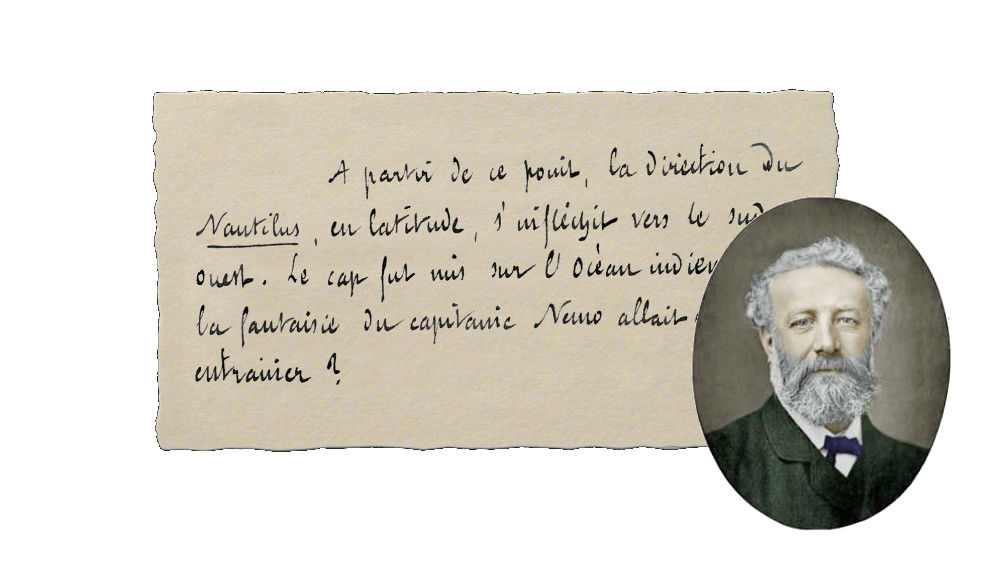 A partir de ce point, la direction du
Nautilus, en latitude, s'infléchit vers le sud
ouest. Le cap fut mis sur l'Océan indien
la fantaisie du capitaine Nemo allait
entrainer ?